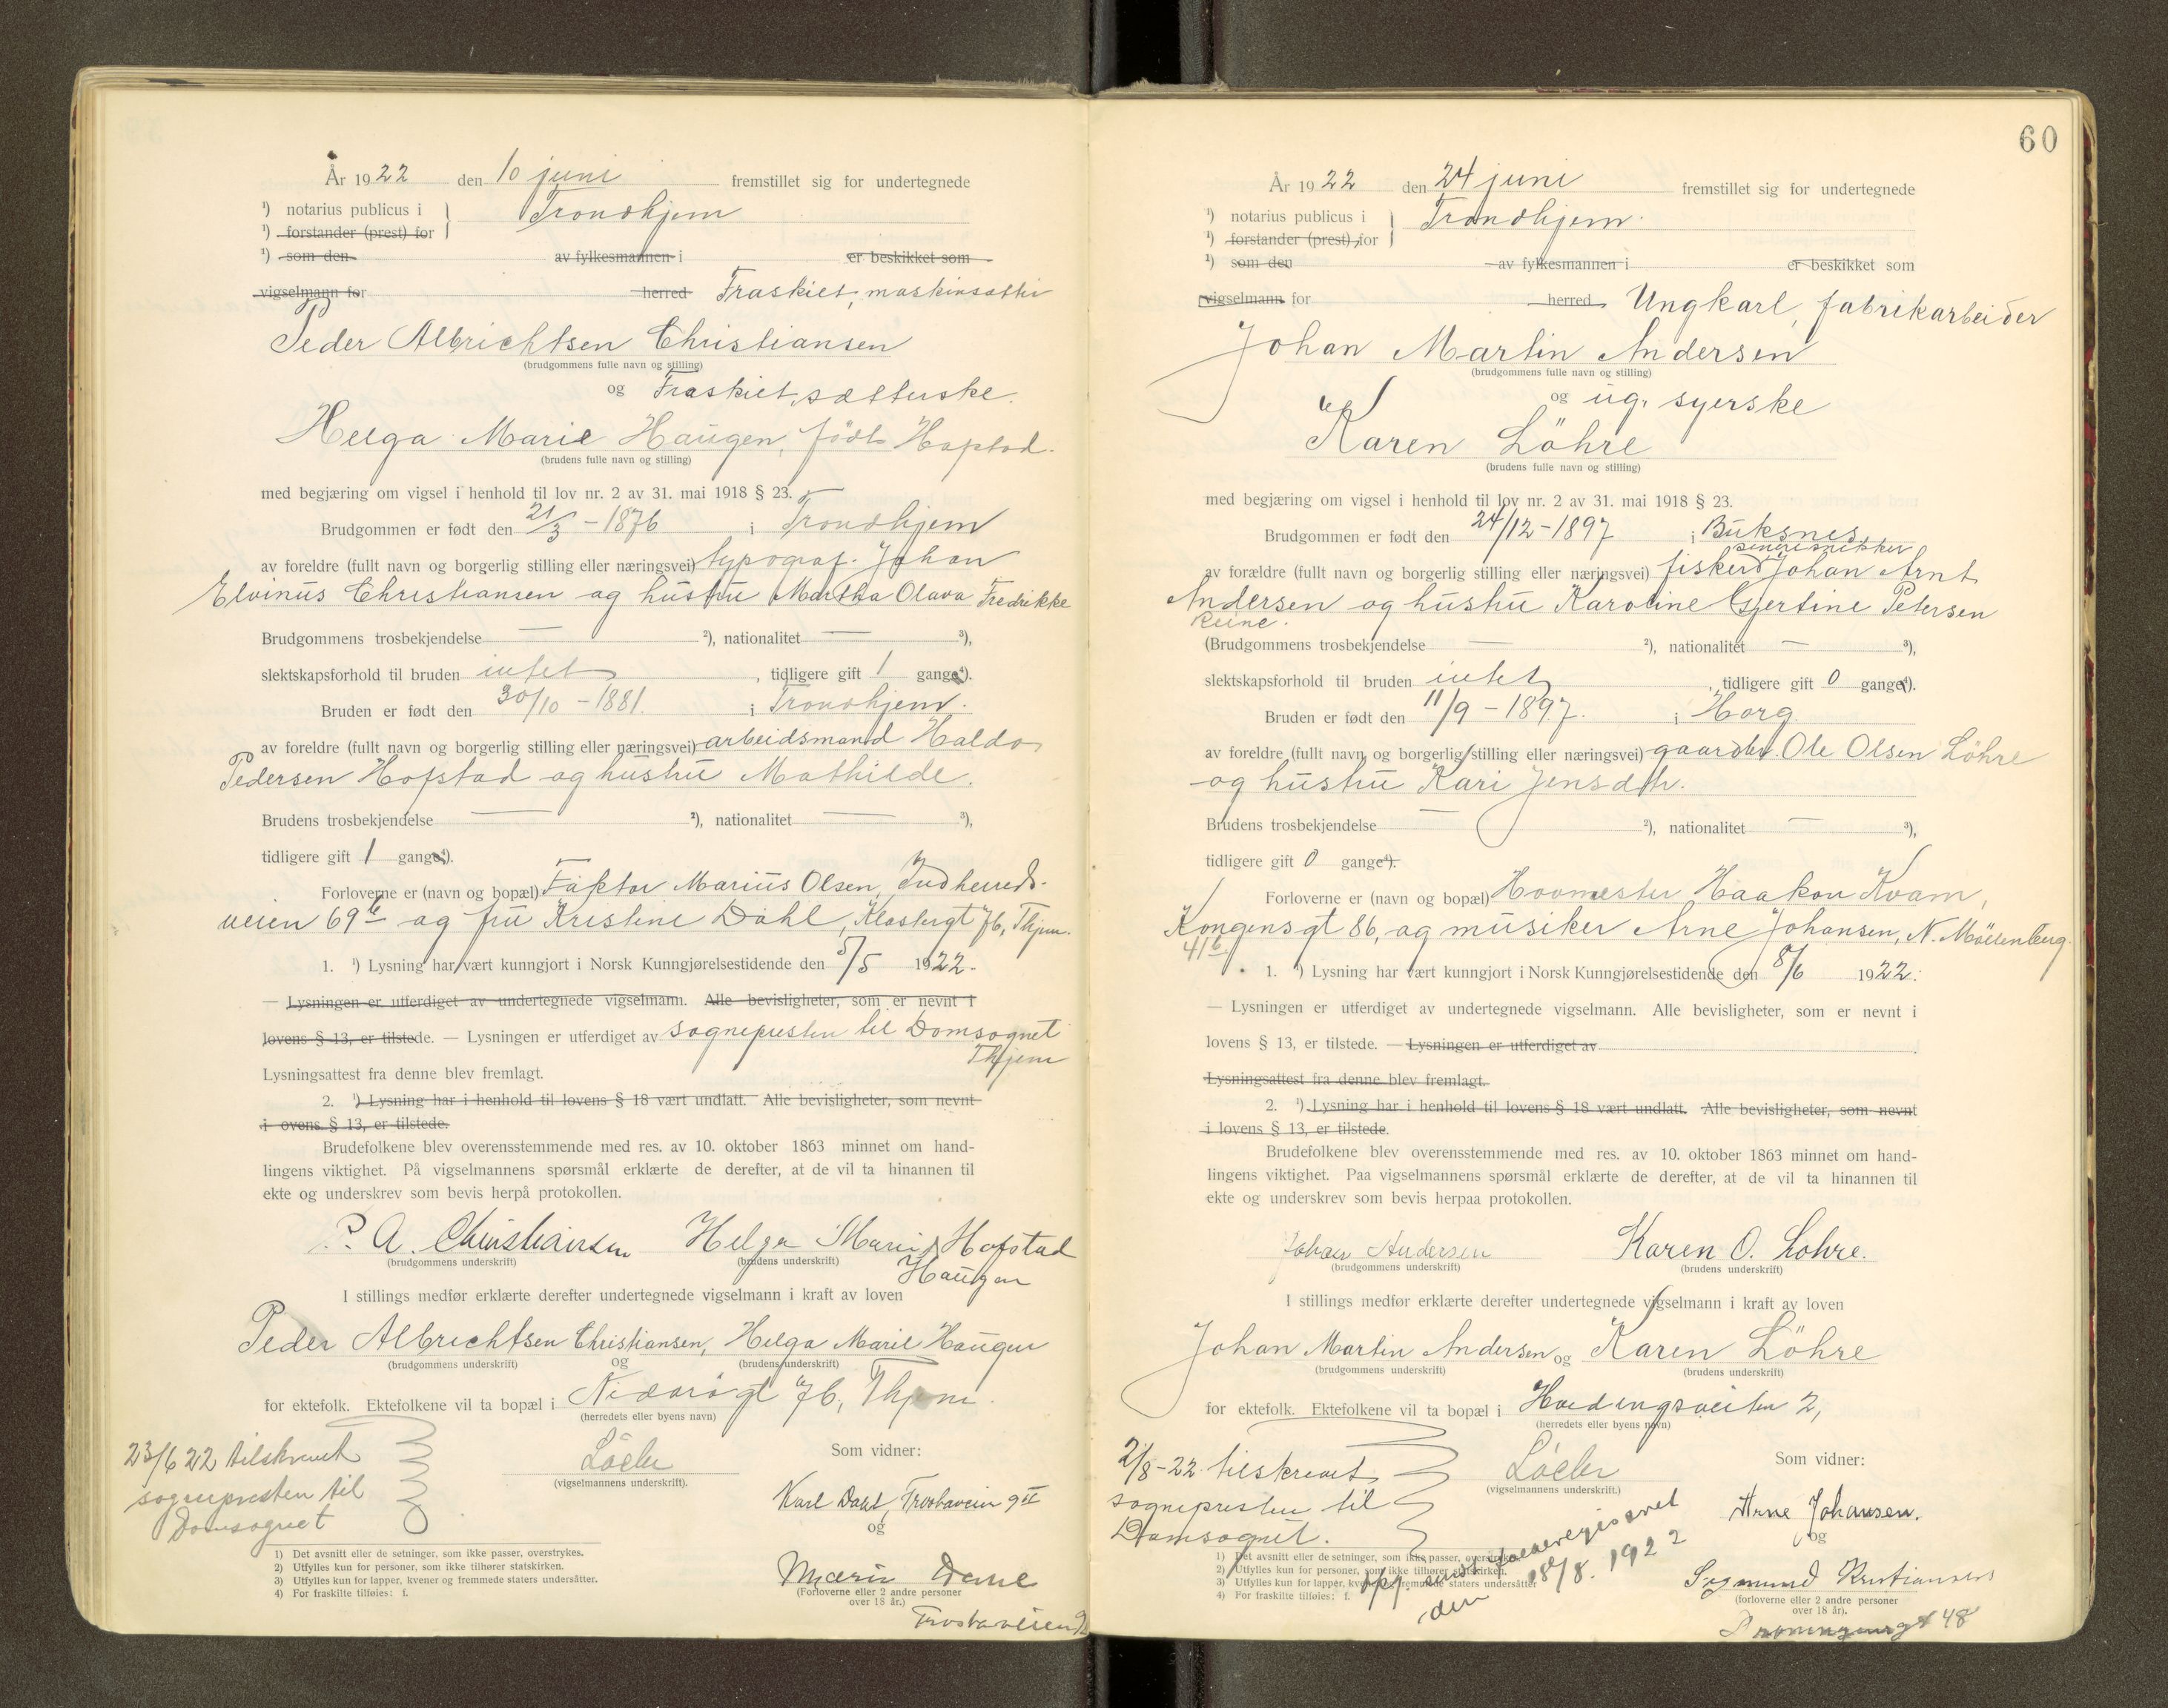 År 1922 den 10 juni fremstillet sig for undertegnede
¹) notarius publicus i Trondhjem
¹) forstander (prest) for
¹) som den av fylkesmannen i er beskikket som
vigselmann for herred Fraskilt, maskinsætter
Peder Albrichtsen Christiansen
(brudgommens fulle navn og stilling)
og Fraskilt, sætterske.
Helga Marie Haugen, född Hofstad.
(brudens fulle navn og stilling)
med begjæring om vigsel i henhold til lov nr. 2 av 31. mai 1918 § 23.
Brudgommen er født den 21/3 - 1876 i Trondhjem
av foreldre (fullt navn og borgerlig stilling eller næringsvei) typograf Johan
Elvinus Christiansen og hustru Martha Olava Fredrikke
Brudgommens trosbekjendelse — ²), nationalitet — ³),
slektskapsforhold til bruden intet, tidligere gift 1 gange⁴).
Bruden er født den 30/10 - 1881. i Trondhjem.
av foreldre (fullt navn og borgerlig stilling eller næringsvei) arbeidsmand Haldo
Pedersen Hofstad og hustru Mathilde.
Brudens trosbekjendelse — ²), nationalitet — ³),
tidligere gift 1 gange⁴).
Forloverne er (navn og bopæl) Faktor Marius Olsen, Indherreds-
veien 69b og fru Kristine Dahl, Klostergt 76, Thjem.
1. ¹) Lysning har vært kunngjort i Norsk Kunngjørelsestidende den 5/5 1922.
— Lysningen er utferdiget av undertegnede vigselmann. Alle bevisligheter, som er nevnt i
lovens § 13, er tilstede. — Lysningen er utferdiget av sognepresten til Domsognet
Thjem
Lysningsattest fra denne blev fremlagt.
2. ¹) Lysning har i henhold til lovens § 18 vært undlatt. Alle bevisligheter, som nevnt
i ovens § 13, er tilstede.
Brudefolkene blev overensstemmende med res. av 10. oktober 1863 minnet om hand-
lingens viktighet. På vigselmannens spørsmål erklærte de derefter, at de vil ta hinannen til
ekte og underskrev som bevis herpå protokollen.
P. A. Christiansen Helga Marie Hofstad
(brudgommens underskrift) (brudens underskrift) Haugen
I stillings medfør erklærte derefter undertegnede vigselmann i kraft av loven
Peder Albrichtsen Christiansen, Helga Marie Haugen
(brudgommens underskrift) og (brudens underskrift)
for ektefolk. Ektefolkene vil ta bopæl i Nidarösgt 76, Thjem.
(herredets eller byens navn)
23/6 22 tilskrevet
sognepresten til
Domsognet
Löchr
(vigselmannens underskrift).
Som vidner:
Karl Dahl, Frostaveien 9 II
og
Dahl
(Forloverne eller 2 andre personer
over 18 år.)
Frostaveien 9
1) Det avsnitt eller de setninger, som ikke passer, overstrykes.
2) Utfylles kun for personer, som ikke tilhører statskirken.
3) Utfylles kun for lapper, kvener og fremmede staters undersåtter.
4) For fraskilte tilføies: f.
60
År 1922 den 24 juni fremstillet sig for undertegnede
¹) notarius publicus i Trondhjem.
¹) forstander (prest) for
¹) som den av fylkesmannen i er beskikket som
vigselmann for herred Ungkarl, fabrikarbeider
Johan Martin Andersen
(brudgommens fulle navn og stilling)
og ug. syerske
Karen Löhre
(brudens fulle navn og stilling)
med begjæring om vigsel i henhold til lov nr. 2 av 31. mai 1918 § 23.
Brudgommen er født den 24/12 - 1897 i Buksnes
av forældre (fullt navn og borgerlig stilling eller næringsvei) fisker Johan Arnt
Andersen og hustru Karoline Gjertine Petersen
Reine.
(Brudgommens trosbekjendelse — ²), nationalitet — ³),
slektskapsforhold til bruden intet, tidligere gift 0 gange⁴).
Bruden er født den 11/9 - 1897. i Horg
av foreldre (fullt navn og borgerlig stilling eller næringsvei) gaardbr. Ole Olsen Löhre
og hustru Kari Jensdtr.
Brudens trosbekjendelse — ²), nationalitet — ³),
tidligere gift 0 gange⁴).
Forloverne er (navn og bopæl) Hovmester Haakon Kvam,
Kongensgt 86, og musiker Arne Johansen, N. Möllenberg
41b.
1. ¹) Lysning har vært kunngjort i Norsk Kunngjørelsestidende den 8/6 1922.
— Lysningen er utferdiget av undertegnede vigselmann. Alle bevisligheter, som er nevnt i
lovens § 13, er tilstede. — Lysningen er utferdiget av
Lysningsattest fra denne blev fremlagt.
2. ¹) Lysning har i henhold til lovens § 18 vært undlatt. Alle bevisligheter, som nevnt
i lovens § 13, er tilstede.
Brudefolkene blev overensstemmende med res. av 10. oktober 1863 minnet om hand-
lingens viktighet. Paa vigselmannens spørsmål erklærte de derefter, at de vil ta hinannen til
ekte og underskrev som bevis herpaa protokollen.
Johan Andersen Karen O. Lohre.
(brudgommens underskrift) (brudens underskrift)
I stillings medfør erklærte derefter undertegnede vigselmann i kraft av loven
Johan Martin Andersen og Karen Löhre
(brudgommens underskrift) (brudens underskrift)
for ektefolk. Ektefolkene vil ta bopæl i Hoedingsveiten 2,
(herredets eller byens navn)
2/8-22 tilskrevet
sognepresten til
Domsognet.
Löchr
(vigselmannens underskrift.)
Som vidner:
Arne Johansen.
og
Sigmund Kristiansen
(forloverne eller 2 andre personer
over 18 år).
Dronningensgt 48
den 18/8. 1922
1) Det avsnitt eller de setninger, som ikke passer, overstrykes.
2) Utfylles kun for personer, som ikke tilhører statskirken.
3) Utfylles kun for lapper, kvener og fremmede staters undersåtter
4) For fraskilte tilføies: f.